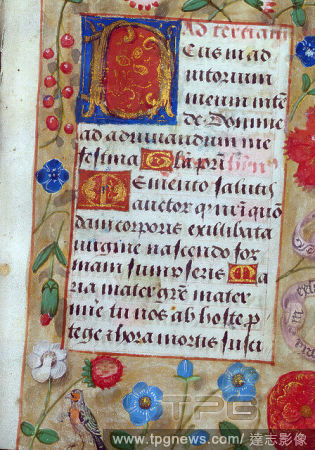 Ad terciam
Deus in ad
iutorium
meum inte
de Domine
ad adiuvandum me
festina Gla pri
Memento salutis
auctor q nri quo
dam corporis ex illibata
virgine nascendo for
mam sumpseris Ma
ria mater gre mater
mie tu nos ab hoste p
tege & hora mortis susci
TPG
www.tpgnews.com/ 達志影像